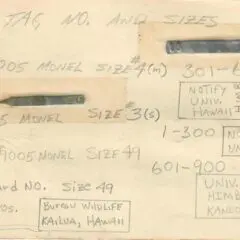 TAG, NO. AND SIZES
1005 MONEL SIZE #4(m)
301-6
NOTIFY
UNIV.
HAWAII
5 MONEL SIZE #3(s)
1-300
NO
UN
4005 MONEL SIZE 49
601-900
UNIV.
HIMB
KANEO
ard NO. Size 49
os.
BUREAU WILDLIFE
KAILUA, HAWAII